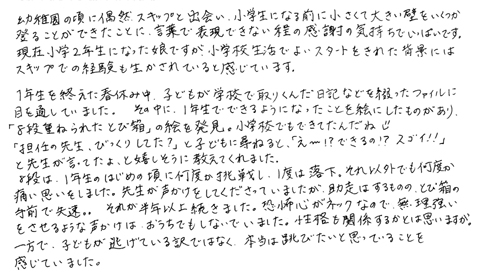 幼稚園の頃に偶然、スキップと出会い、小学生になる前に小さくて大きい壁をいくつか
登ることができたことに、言葉で表現できない程の感謝の気持ちでいっぱいです。
現在小学2年生になった娘ですが、小学校生活でよいスタートをきれた背景には
スキップでの経験も生かされていると感じています。
1年生を終えた春休み中、子どもが学校で取りくんだ日記などを綴ったファイルに
目を通していました。 その中に、1年生でできるようになったことを絵にしたものがあり、
「8段重ねられたとび箱」の絵を発見。小学校でもできてたんだね!!
「担任の先生、びっくりしてた?」と子どもに尋ねると、「え〜!?できるの!?スゴイ!!」
と先生が言ってたよ、と嬉しそうに教えてくれました。
8段は、1年生のはじめの頃に何度か挑戦し、1度は落下。それ以外でも何度か
痛い思いをしました。先生が声かけをしてくださっていましたが、助走はするものの、とび箱の
手前で失速。。 それが半年以上続きました。恐怖心がネックなので、無理強い
をさせるような声かけは、おうちでもしないでいました。性格も関係するかとは思いますが。
一方で、子どもが逃げている訳ではなく、本当は跳びたいと思っていることを
感じていました。